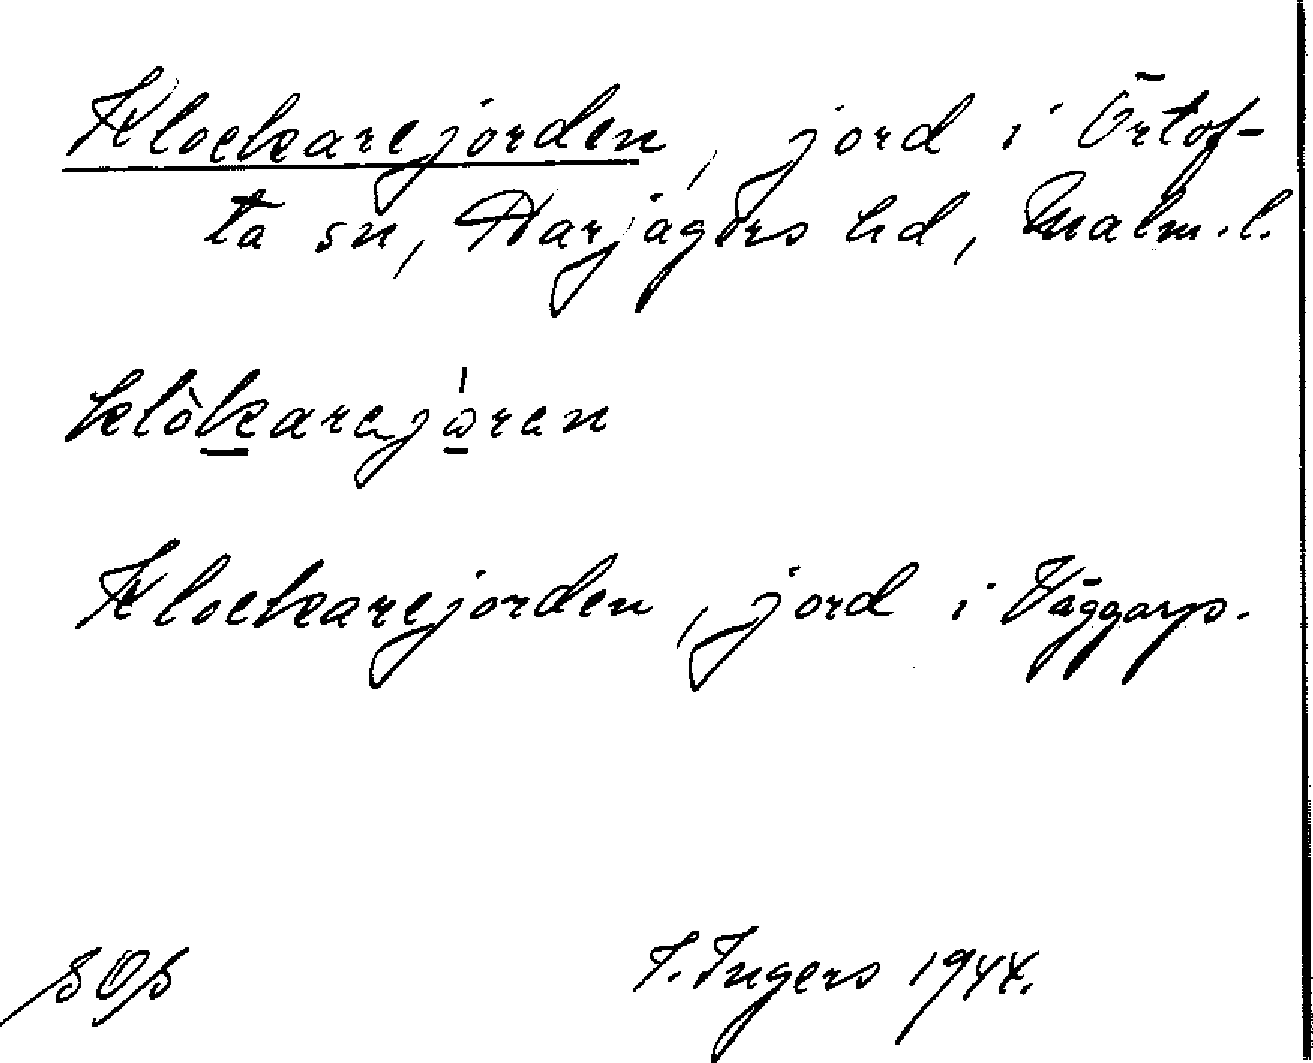 Klockarejorden, jord i Örtof-
ta sn, Harjagers hd, Malm.l.
klòkarejåren
Klockarejorden, jord i Väggarp.
SOS I. Ingers 1944.